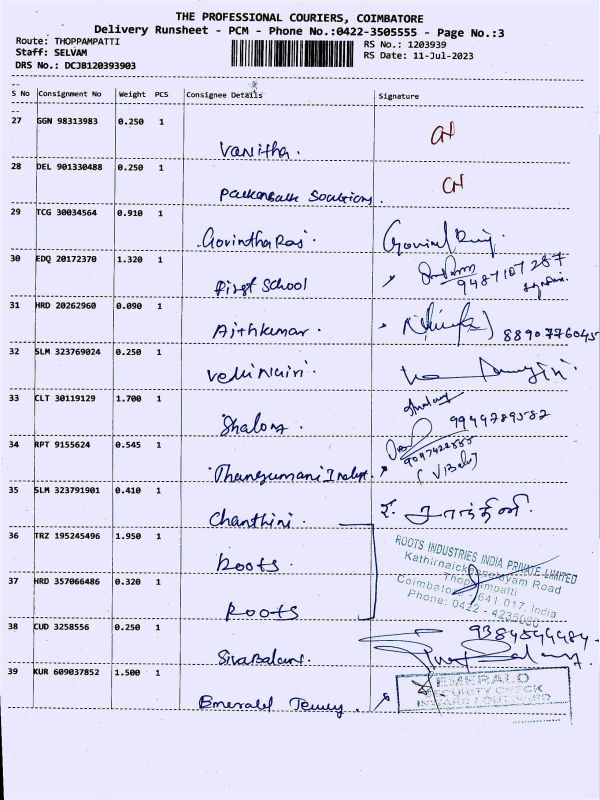 THE PROFESSIONAL COURIERS, COIMBATORE
Delivery Runsheet - PCM - Phone No.:0422-3505555 - Page No.:3
Route: THOPPAMPATTI
RS No.: 1203939
Staff: SELVAM
RS Date: 11-Jul-2023
DRS No.: DCJB120393903
S No Consignment No Weight PCS Consignee Details Signature
27 GGN 98313983 0.250 1
Vanitha.
28 DEL 901330488 0.250 1
29 TCG 30034564 0.910 1
Govintha Raj.
30 EDQ 20172370 1.320 1
First School
9487107287
31 HRD 20262960 0.090 1
Ajthkumar.
8890776045
32 SLM 323769024 0.250 1
33 CLT 30119129 1.700 1
9944789582
34 RPT 9155624 0.545 1
35 SLM 323791901 0.410 1
Chanthini.
சாந்தினி.
36 TRZ 195245496 1.950 1
Roots
ROOTS INDUSTRIES INDIA PRIVATE LIMITED
37 HRD 357066486 0.320 1
Roots
Thoppampatti
Coimbatore - 641 017, India
Phone: 0422 - 4235000
38 CUD 3258556 0.250 1
Siva Balans.
39 KUR 609037852 1.500 1
EMERALD
SECURITY CHECK